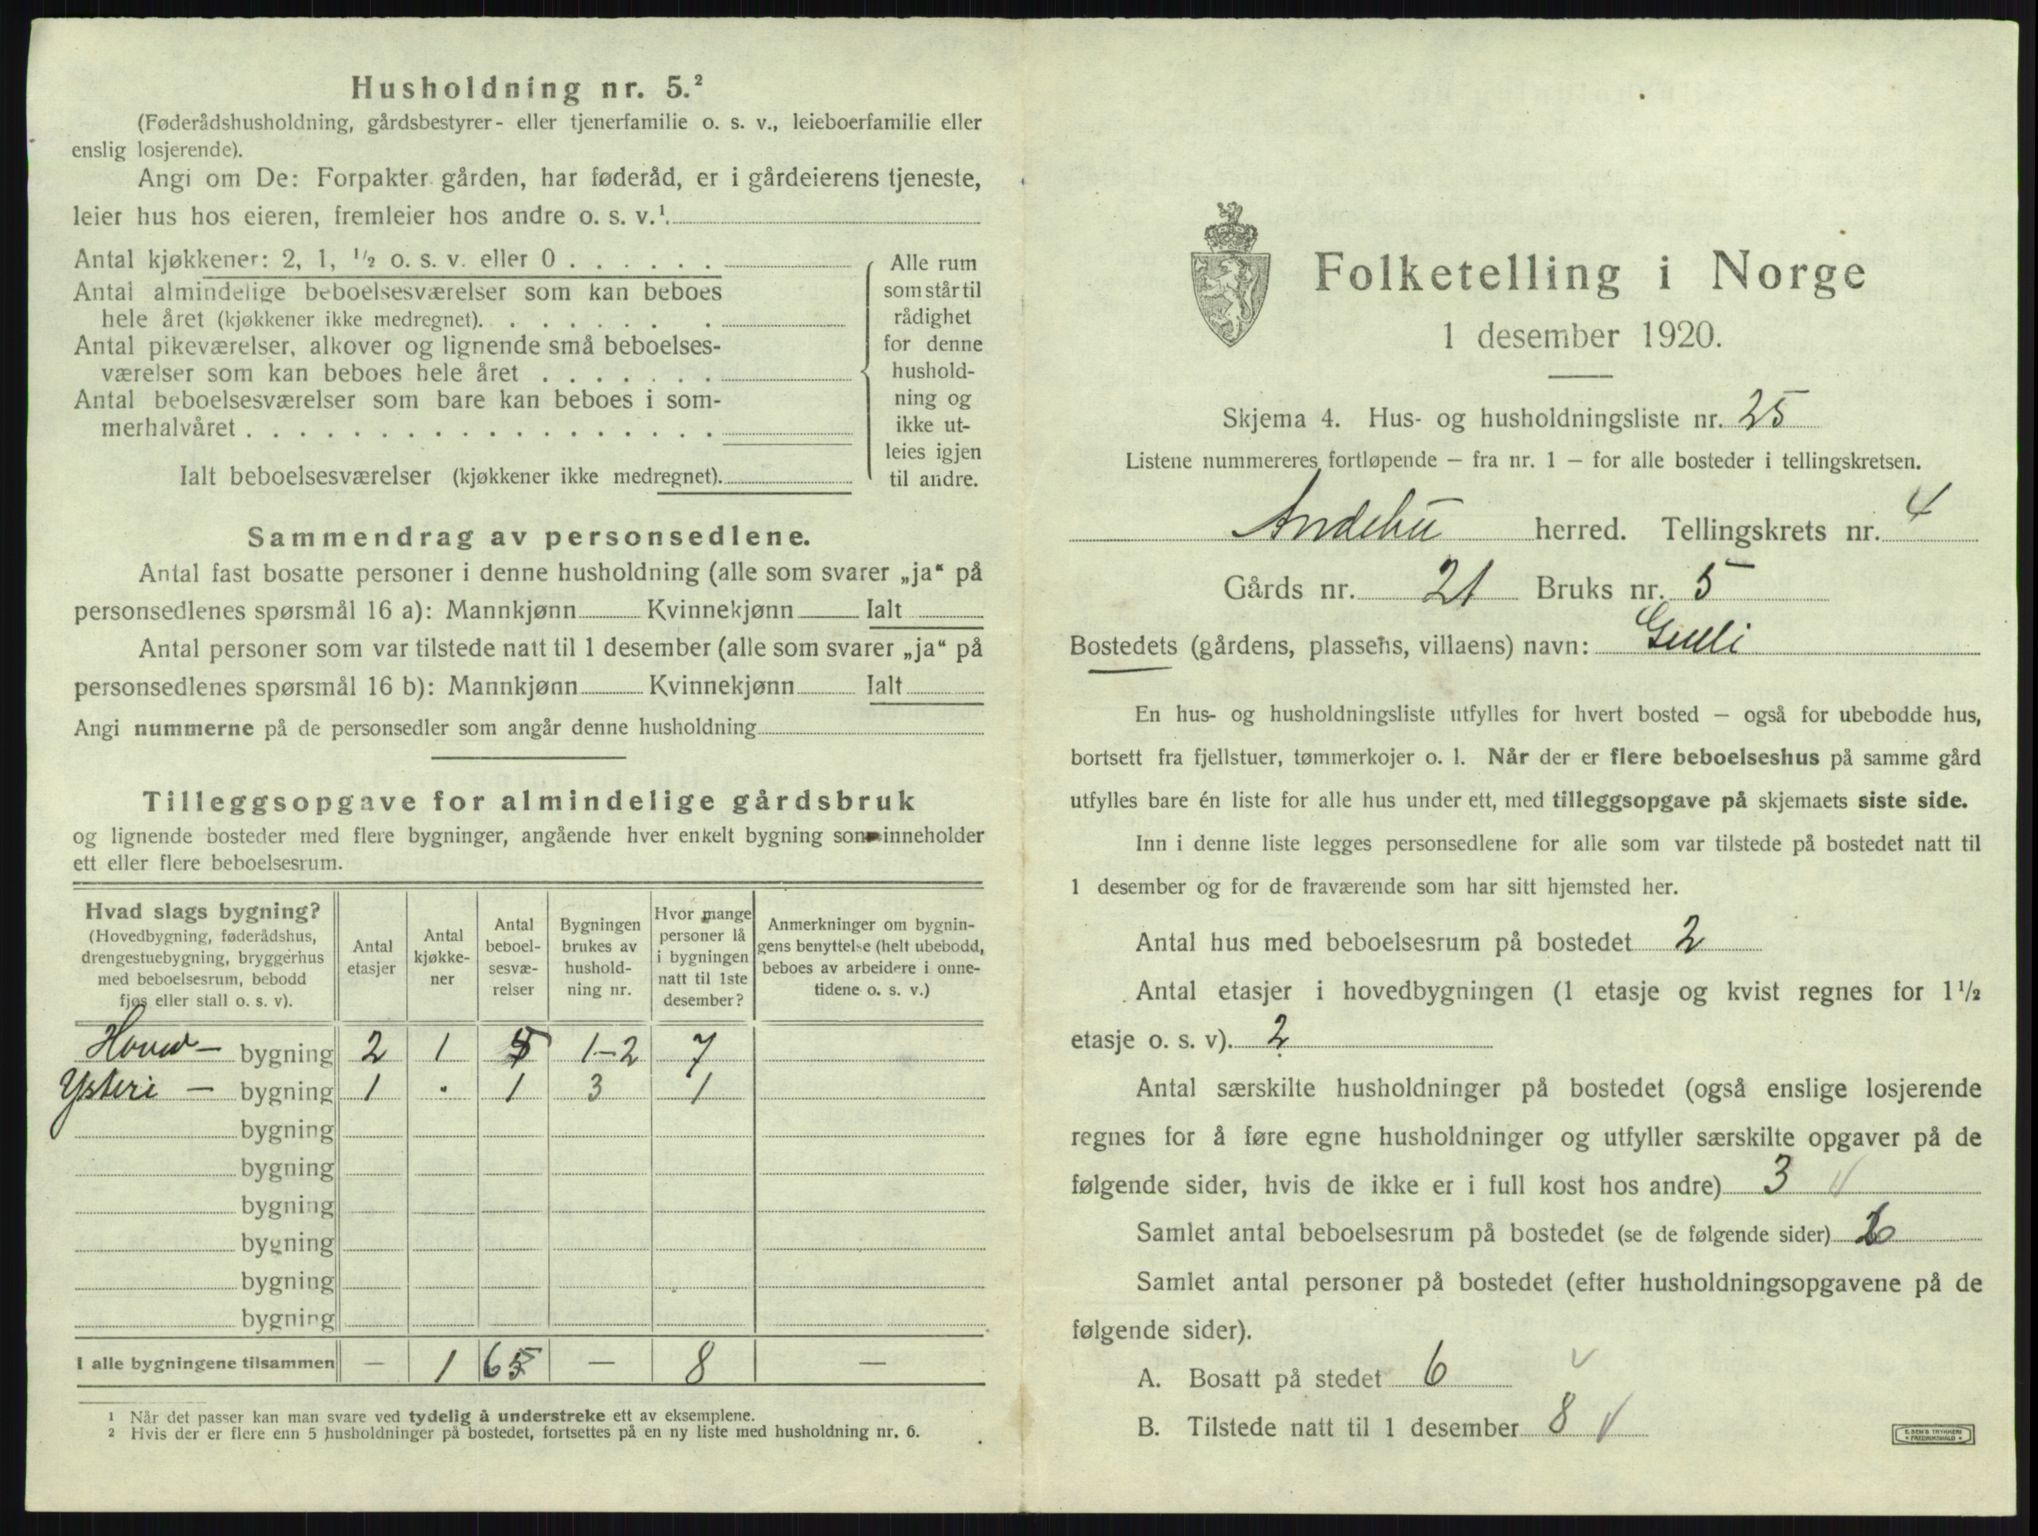 Husholdning nr. 5.²
(Føderådshusholdning, gårdsbestyrer- eller tjenerfamilie o. s. v., leieboerfamilie eller
enslig losjerende).
Angi om De: Forpakter gården, har føderåd, er i gårdeierens tjeneste,
leier hus hos eieren, fremleier hos andre o. s. v.¹.
Antal kjøkkener: 2, 1, ¹/₂ o. s. v. eller 0 . . . . . .
Antal almindelige beboelsesværelser som kan beboes
hele året (kjøkkener ikke medregnet). . . . . . . .
Antal pikeværelser, alkover og lignende små beboelses-
værelser som kan beboes hele året . . . . . . .
Antal beboelsesværelser som bare kan beboes i som-
merhalvåret . . . . . . . . . . . . . . . . . .
Ialt beboelsesværelser (kjøkkener ikke medregnet).
Alle rum
som står til
rådighet
for denne
hushold-
ning og
ikke ut-
leies igjen
til andre.
Sammendrag av personsedlene.
Antal fast bosatte personer i denne husholdning (alle som svarer „ja“ på
personsedlenes spørsmål 16 a): Mannkjønn Kvinnekjønn Ialt
Antal personer som var tilstede natt til 1 desember (alle som svarer „ja“ på
personsedlenes spørsmål 16 b): Mannkjønn Kvinnekjønn Ialt
Angi nummerne på de personsedler som angår denne husholdning
Tilleggsopgave for almindelige gårdsbruk
og lignende bosteder med flere bygninger, angående hver enkelt bygning som inneholder
ett eller flere beboelsesrum.
Hvad slags bygning?
(Hovedbygning, føderådshus,
drengestuebygning, bryggerhus
med beboelsesrum, bebodd
fjøs eller stall o. s. v).
Antal
etasjer
Antal
kjøkke-
ner
Antal
beboel-
sesvæ-
relser
Bygningen
brukes av
hushold-
ning nr.
Hvor mange
personer lå
i bygningen
natt til 1ste
desember?
Anmerkninger om bygnin-
gens benyttelse (helt ubebodd,
beboes av arbeidere i onne-
tidene o. s. v.)
Hoved- bygning 2 1 5 1-2 7
Ysteri - bygning 1 . 1 3 1
bygning
bygning
bygning
bygning
bygning
bygning
I alle bygningene tilsammen — 1 6 — 8 —
1 Når det passer kan man svare ved tydelig å understreke ett av eksemplene.
2 Hvis der er flere enn 5 husholdninger på bostedet, fortsettes på en ny liste med husholdning nr. 6.
Folketelling i Norge
1 desember 1920.
Skjema 4. Hus- og husholdningsliste nr. 25
Listene nummereres fortløpende – fra nr. 1 – for alle bosteder i tellingskretsen.
Andebu herred. Tellingskrets nr. 4
Gårds nr. 21 Bruks nr. 5
Bostedets (gårdens, plassens, villaens) navn: Gulli
En hus- og husholdningsliste utfylles for hvert bosted – også for ubebodde hus,
bortsett fra fjellstuer, tømmerkojer o. l. Når der er flere beboelseshus på samme gård
utfylles bare én liste for alle hus under ett, med tilleggsopgave på skjemaets siste side.
Inn i denne liste legges personsedlene for alle som var tilstede på bostedet natt til
1 desember og for de fraværende som har sitt hjemsted her.
Antal hus med beboelsesrum på bostedet 2
Antal etasjer i hovedbygningen (1 etasje og kvist regnes for 1¹/₂
etasje o. s. v). 2
Antal særskilte husholdninger på bostedet (også enslige losjerende
regnes for å føre egne husholdninger og utfyller særskilte opgaver på de
følgende sider, hvis de ikke er i full kost hos andre) 3
Samlet antal beboelsesrum på bostedet (se de følgende sider) 6
Samlet antal personer på bostedet (efter husholdningsopgavene på de
følgende sider).
A. Bosatt på stedet 6
B. Tilstede natt til 1 desember 8
E. SEM'S TRYKKERI
FREDRIKSHALD